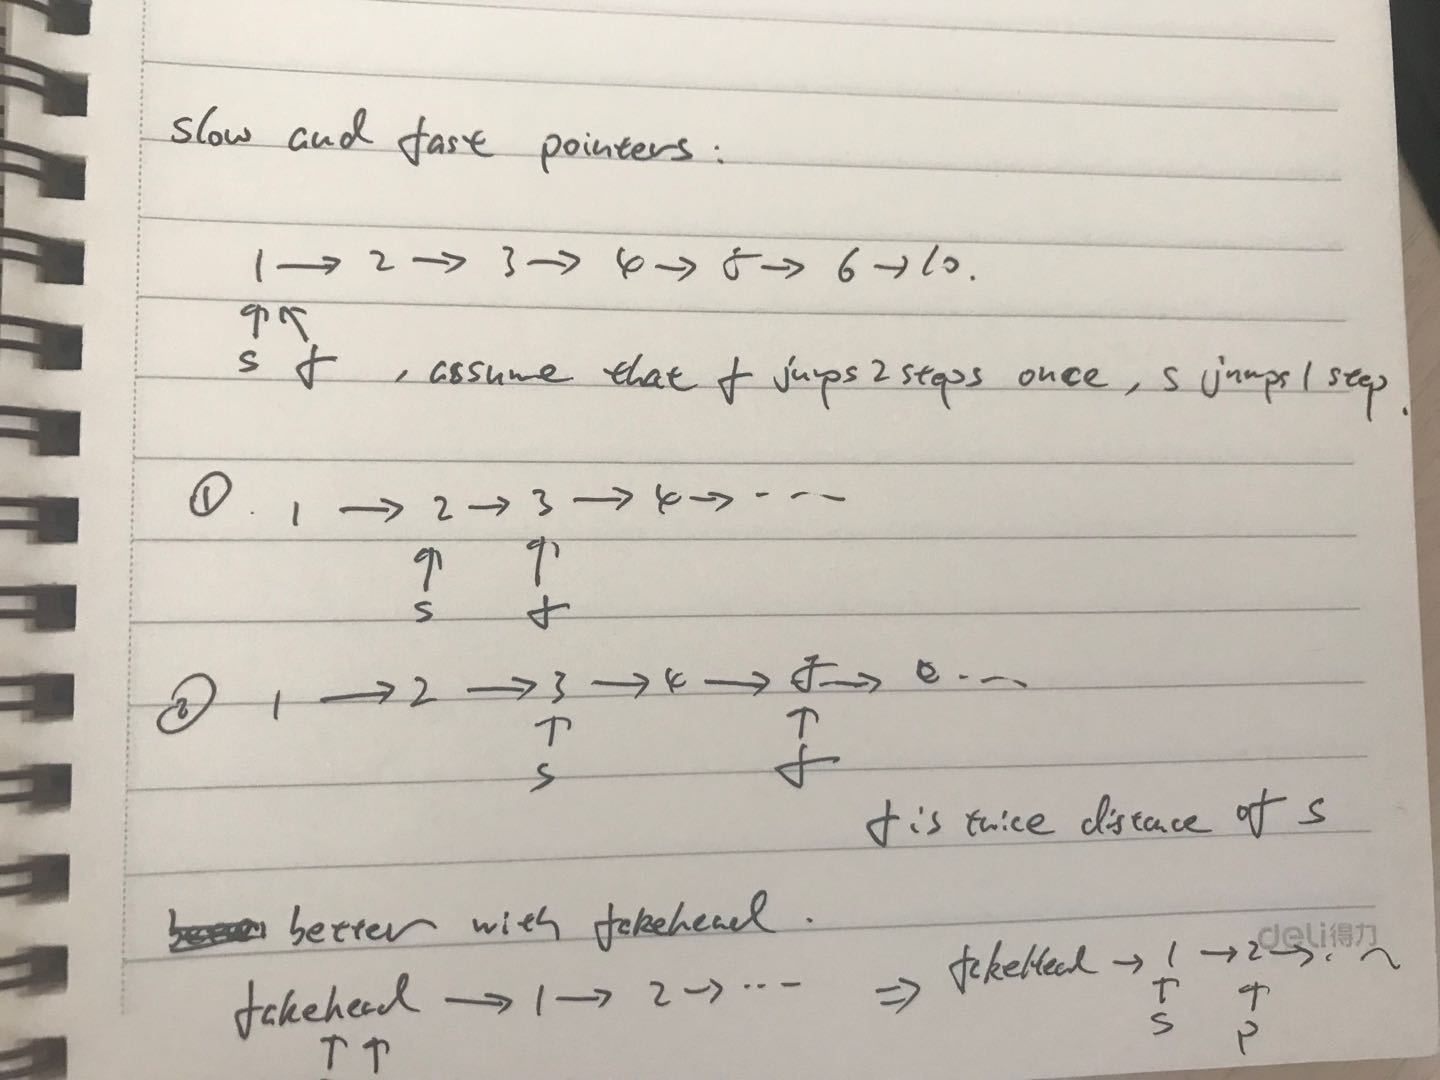 slow and fast pointers:
1 → 2 → 3 → 4 → 5 → 6 → 10.
↑ ↖
s f , assume that f jumps 2 steps once, s jumps 1 step.
① . 1 → 2 → 3 → 4 → ---
↑ ↑
s f
② 1 → 2 → 3 → 4 → 5 → 6 ---
↑ ↑
s f
f is twice distance of s
better with fakehead.
fakehead → 1 → 2 → ... ⇒ fakeHead → 1 → 2 → ...
↑ ↑ ↑ ↑
s p
deli得力